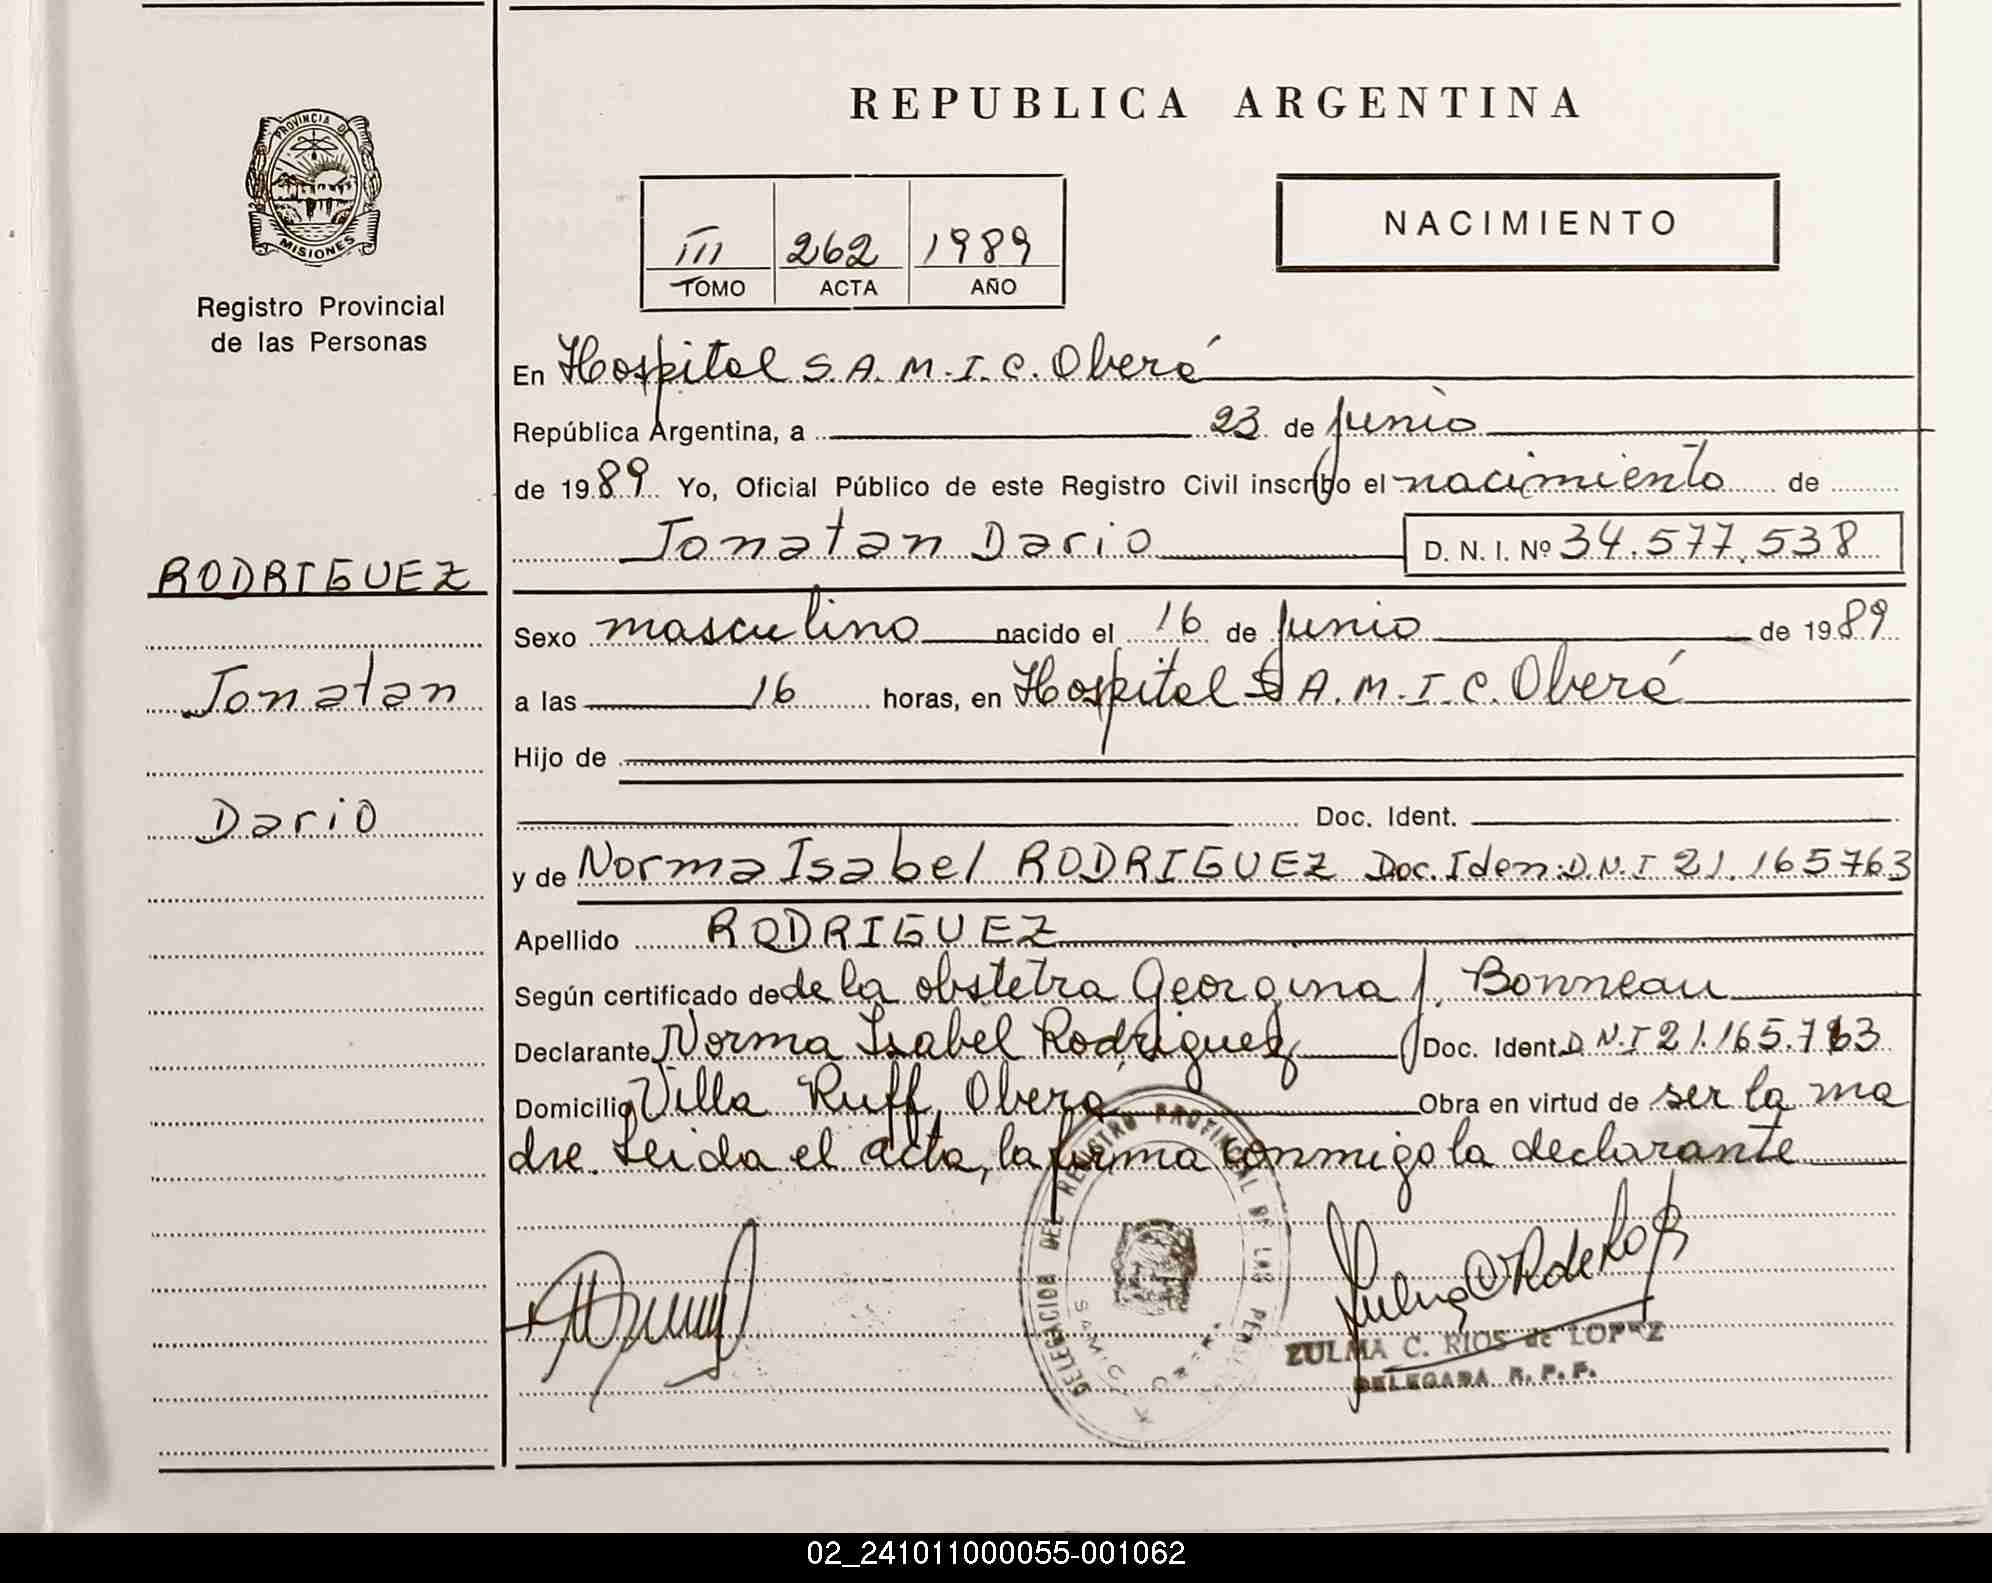 PROVINCIA DE
MISIONES
Registro Provincial
de las Personas
RODRIGUEZ
Jonatan
Dario
REPUBLICA ARGENTINA
III 262 1989
TOMO ACTA AÑO
NACIMIENTO
En Hospital S.A.M.I.C. Oberá
República Argentina, a 23 de junio
de 1989 Yo, Oficial Público de este Registro Civil inscribo el nacimiento de
Jonatan Dario D. N. I. Nº 34.577.538
Sexo masculino nacido el 16 de junio de 1989
a las 16 horas, en Hospital S A.M.I.C. Oberá
Hijo de
Doc. Ident.
y de Norma Isabel RODRIGUEZ Doc. Iden: D.N.I 21.165763
Apellido RODRIGUEZ
Según certificado de de la obstetra Georgina J. Bonneau
Declarante Norma Isabel Rodriguez Doc. Ident. D.N.I 21.165.763
Domicilio Villa Ruff, Oberá Obra en virtud de ser la ma
dre. Leida el acta, la firma conmigo la declarante
DELEGACION DEL REGISTRO PROVINCIAL DE LAS
ZULMA C. RIOS de LOPEZ
DELEGADA R. P. P.
02_241011000055-001062